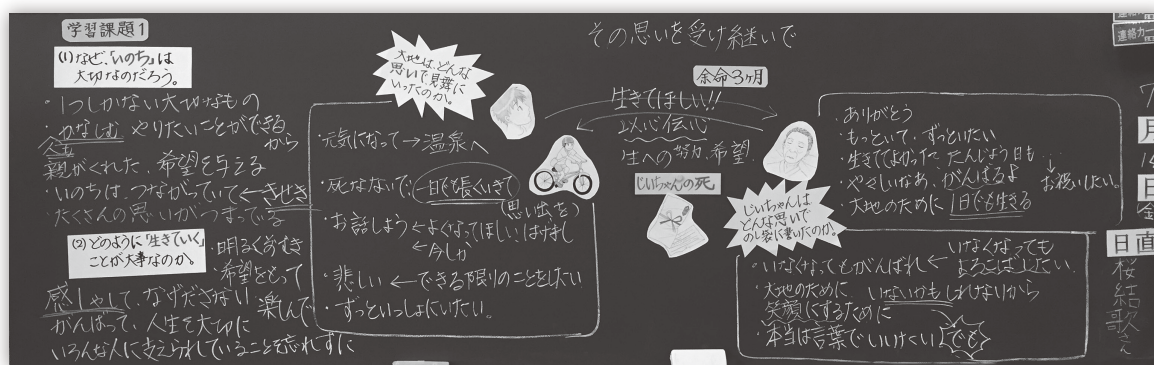 学習課題1
(1)なぜ、「いのち」は
大切なのだろう。
・1つしかない大切なもの
・かなしむ やりたいことができる
人も
から
親がくれた、希望を与える
・いのちは、つながっていて←きせき
・たくさんの思いがつまっている
(2)どのように「生きていく」
ことが大事なのか。
・明るく
・希望をもって
感しゃして、なげださない
楽しんで
がんばって、人生を大切に
いろんな人に支えられていることを忘れずに
大地は、どんな
思いで見舞に
いったのか。
・元気になって→温泉へ
・死なないで、一日でも長くいきて
(思い出を)
・お話しよう←よくなってほしい はげまし
←今しか
・悲しい←できる限りのことをしたい
・ずっといっしょにいたい。
その思いを受け継いで
余命3ヶ月
生きてほしい!!
以心伝心
生への努力、希望
じいちゃんの死
じいちゃんは
どんな思いで
のし袋に書いたのか。
・ありがとう
・もっといて、ずっといたい
・生きててよかった たんじょう日も…
・やさしいなあ、がんばるよ
お祝いしたい。
・大地のために 1日でも生きる
いなくなっても
・いなくなってもがんばれ← よろこばしたい。
・大地のために いないかもしれないから
笑顔にするために
・本当は言葉でいいたい でも
連絡カー
月
日
金
日直
桜
結
歌
さん